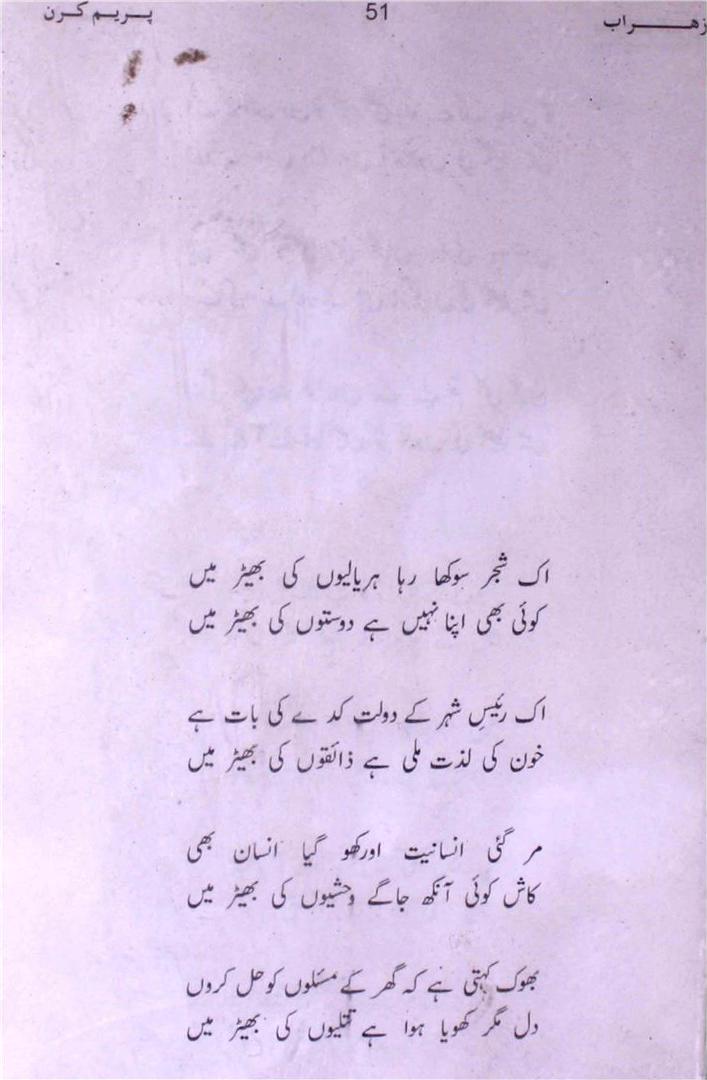 زهراب 51 پریم کرن
اک شجر سوکھا رہا ہریالیوں کی بھیڑ میں
کوئی بھی اپنا نہیں ہے دوستوں کی بھیڑ میں
اک رئیسِ شہر کے دولت کدے کی بات ہے
خون کی لذت ملی ہے ذائقوں کی بھیڑ میں
مر گئی انسانیت اور کھو گیا انسان بھی
کاش کوئی آنکھ جاگے وحشیوں کی بھیڑ میں
بھوک کہتی ہے کہ گھر کے مسئلوں کو حل کروں
دل مگر کھویا ہوا ہے تتلیوں کی بھیڑ میں